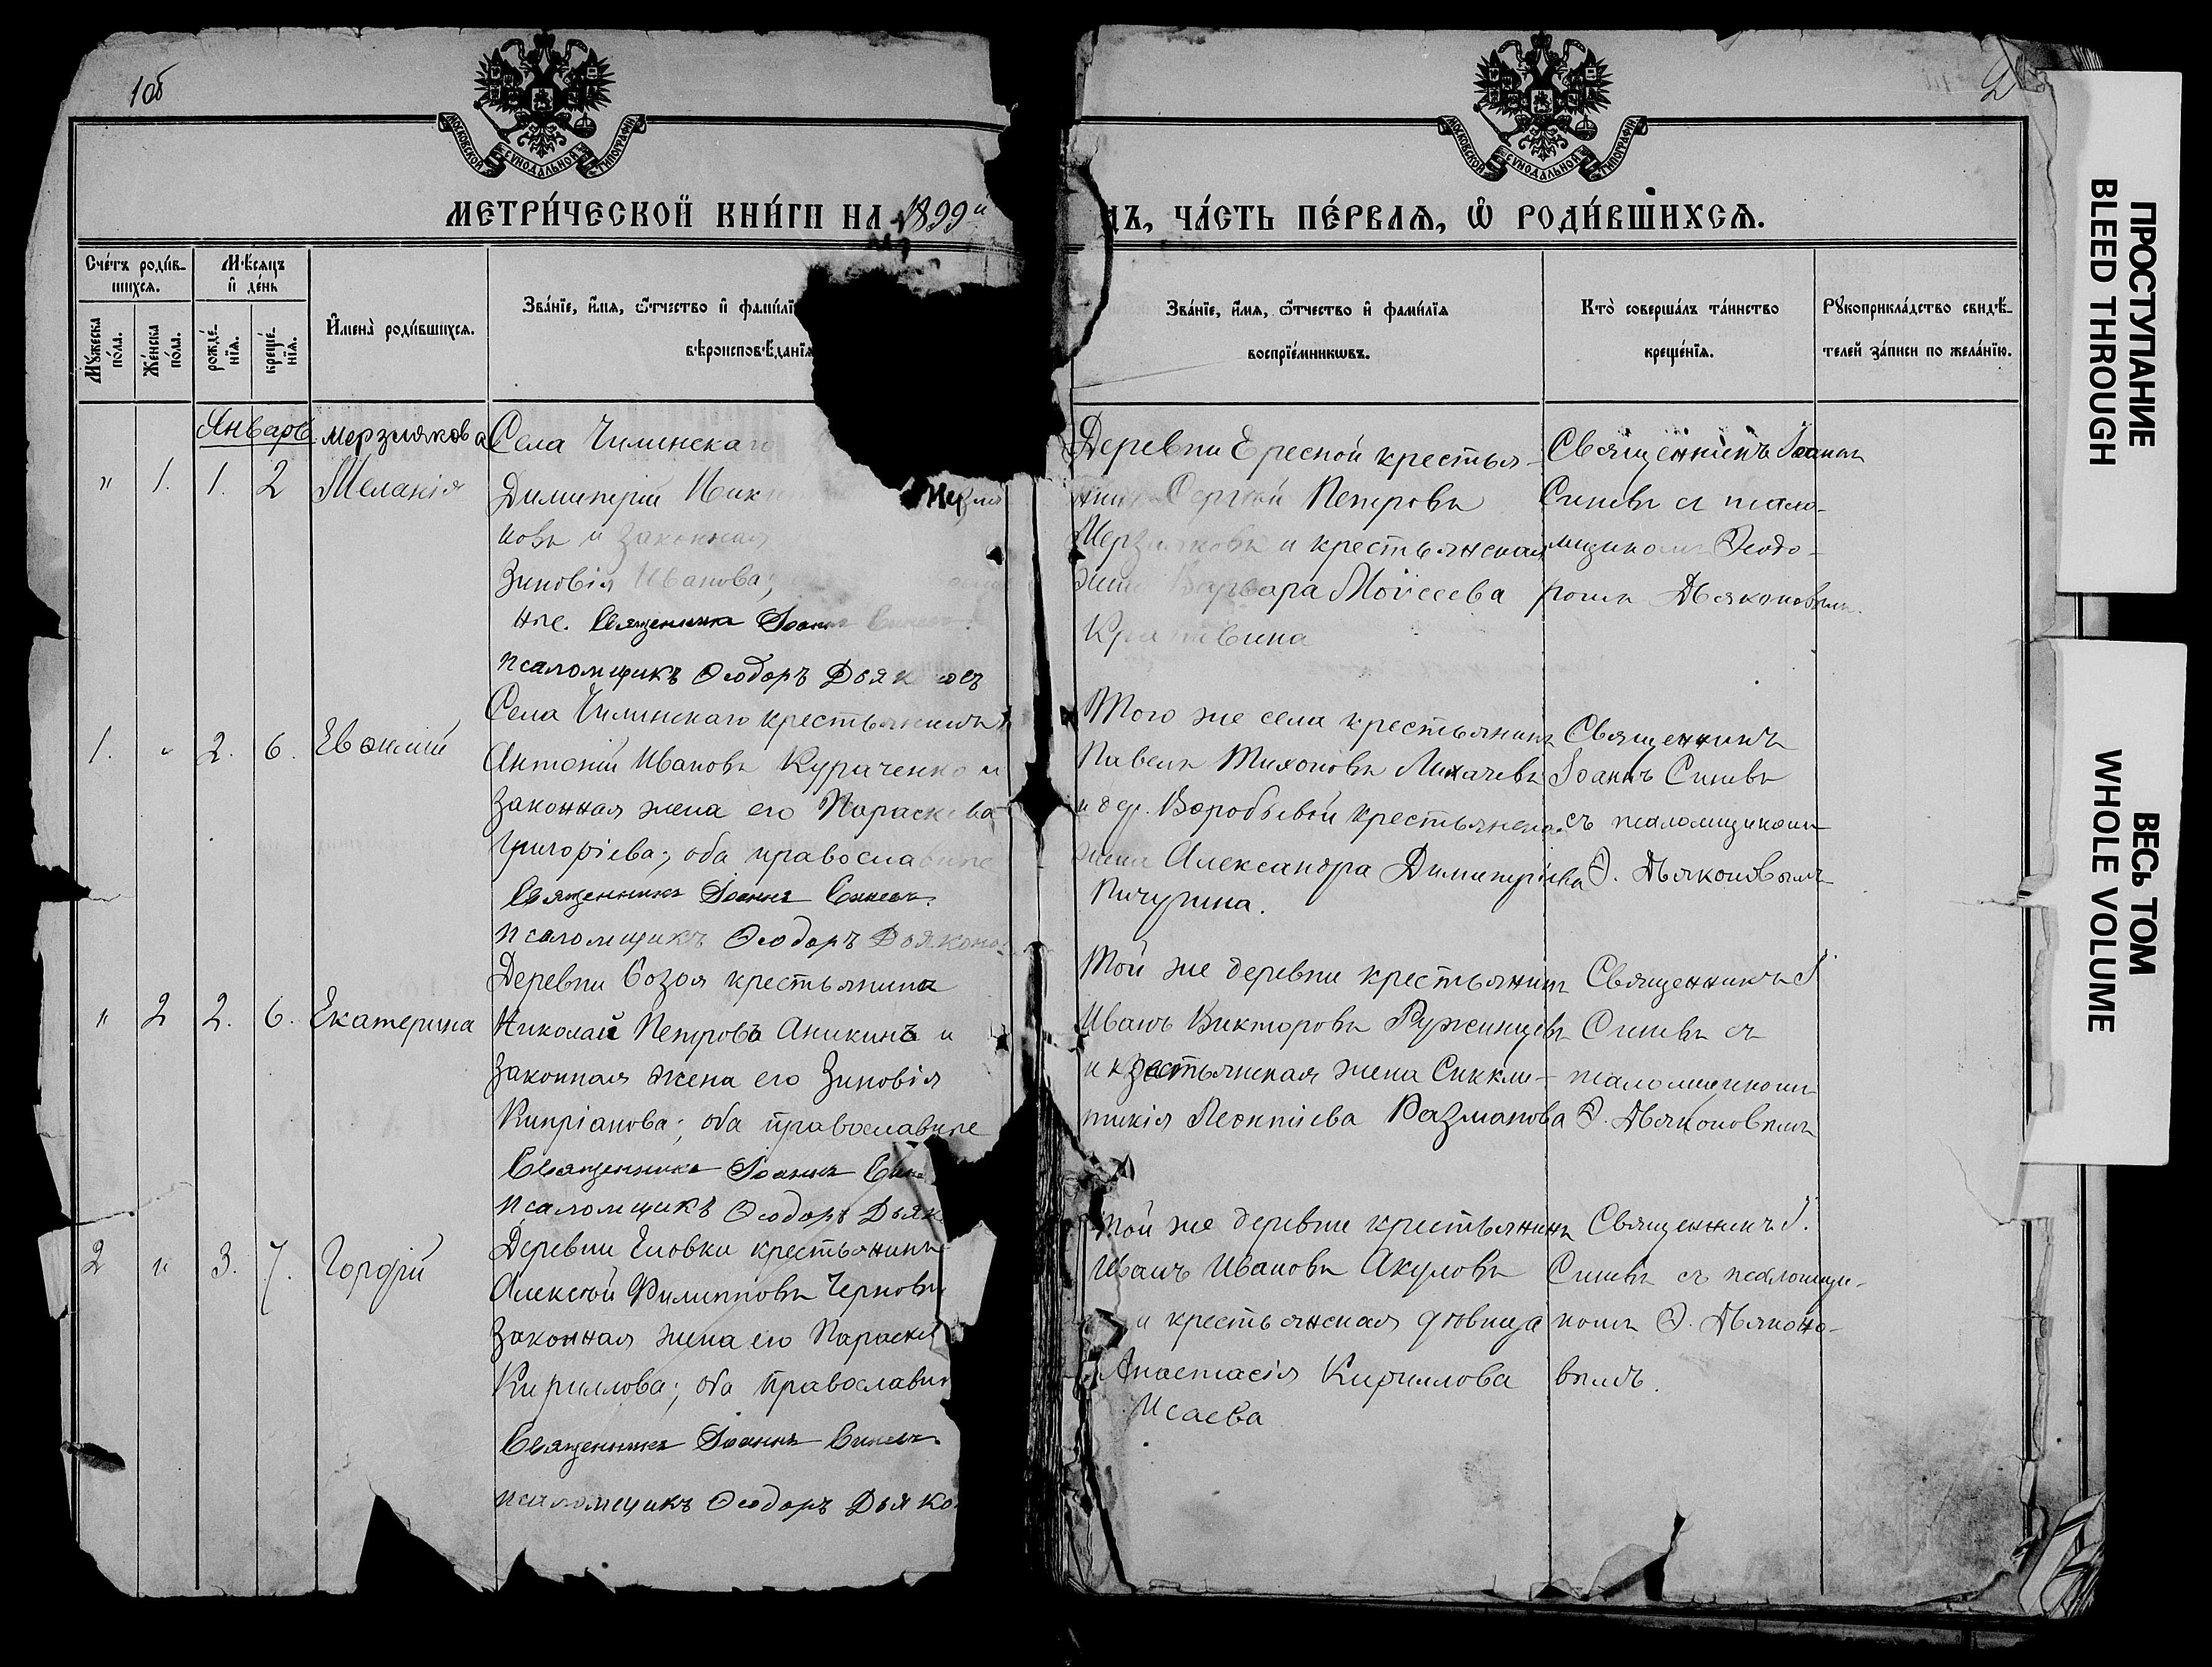 1об
2
МОСКОВСКОЙ СѴНОДАЛЬНОЙ ТИПОГРАФІИ
МОСКОВСКОЙ СѴНОДАЛЬНОЙ ТИПОГРАФІИ
МЕТРИ́ЧЕСКОЙ КНИ́ГИ НА 1899й
ДЪ, ЧА́СТЬ ПЕ́РВАѦ, Ѡ РОДИ́ВШИХСѦ.
Сче́тъ роди́в-
шихсѧ.
Мѣ́сѧцъ
и де́нь
Мꙋ́жеска
по́ла.
Же́нска
по́ла.
рожде́-
нїѧ.
креще́-
нїѧ.
И҆мена̀ роди́вшихсѧ.
Зва́нїе, и҆́мѧ, ѻ҆́тчество и҆ фами́лї
вѣроисповѣ́данїѧ
Зва́нїе, и҆́мѧ, ѻ҆́тчество и҆ фами́лїѧ
воспрїе́мникѡвъ.
Кто̀ соверша́лъ та́инство
креще́нїѧ.
Рꙋкоприкла́дство свидѣ́-
телей за́писи по жела́нїю.
Январь
Мерзлякова
" 1. 1. 2 Меланія
Села Чилинскаго
Димитрій Ник Мерзля
ковъ и законная
Зиновія Иванова;
ные. Священникъ Іоаннъ Синевъ.
Псаломщикъ Ѳеодоръ Дьяконовъ
Деревни Ересной крестья-
нинъ Сергѣй Петровъ
Мерзляковъ и крестьянская
жена Варвара Моѵсеева
Кри вина
Священникъ Іоаннъ
Синевъ съ псало-
мщикомъ Ѳеодо-
ромъ Дьяконовымъ.
1. " 2. 6. Евѳимій
Села Чилинскаго крестьянинъ
Антоній Ивановъ Кураченко и
законная жена его Параскева
Григоріева; оба православные
Священникъ Іоаннъ Синевъ.
Псаломщикъ Ѳеодоръ Дьяконо
Того же села крестьянинъ
Павелъ Тихоновъ Лихачевъ
и дер. Воробьевой крестьянская
жена Александра Димитріева
Пичугина.
Священникъ
Іоаннъ Синевъ
съ псаломщикомъ
Ѳ. Дьяконовымъ
" 2 2. 6. Екатерина
Деревни Базоя крестьянинъ
Николай Петровъ Аникинъ и
законная жена его Зиновія
Кипріанова; оба православные
Священникъ Іоаннъ Сине
Псаломщикъ Ѳеодоръ Дьяк
Той же деревни крестьянинъ
Иванъ Викторовъ Ружинцевъ
и крестьянская жена Сикли-
тикія Леонтіева Разманова
Священникъ І.
Синевъ съ
псаломщикомъ
Ѳ. Дьяконовымъ
2 " 3. 7. Гордій
Деревни Еловки крестьянинъ
Алексѣй Филипповъ Черновъ
законная жена его Параске
Кириллова; оба православн
Священникъ Іоаннъ Синевъ.
Псаломщикъ Ѳеодоръ Дьяко
Той же деревни крестьянинъ
Иванъ Ивановъ Акуловъ
и крестьянская дѣвица
Анастасія Кириллова
Исаева
Священникъ І.
Синевъ съ псаломщи-
комъ Ѳ. Дьяконо-
вымъ.
ПРОСТУПАНИЕ
BLEED THROUGH
ВЕСЬ ТОМ
WHOLE VOLUME